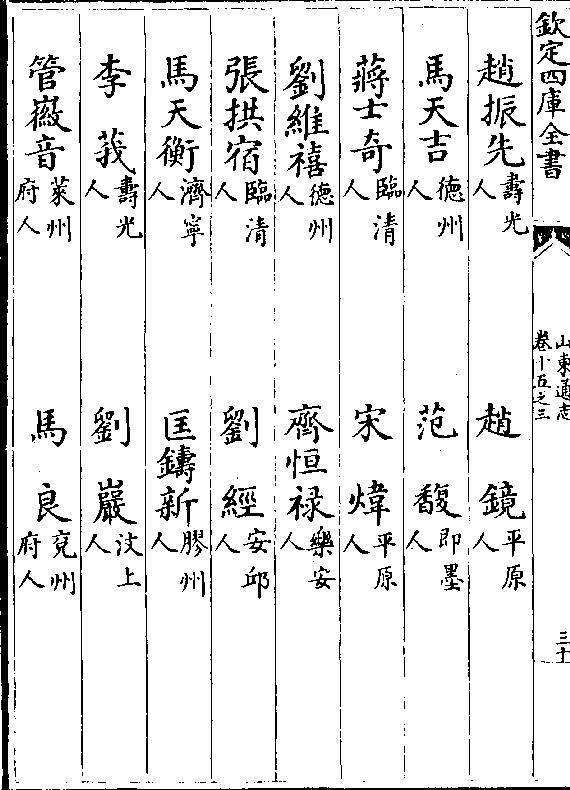 欽定四庫全書
山東通志
卷十五之三
三十
趙振先壽光人 趙鏡平原人
馬天吉德州人 范馥即墨人
蔣士奇臨清人 宋煒平原人
劉維禧德州人 齊恒禄樂安人
張拱宿臨清人 劉經安邱人
馬天衡濟寧人 匡鑄新膠州人
李莪壽光人 劉巖汶上人
管嶶音萊州府人 馬良兖州府人